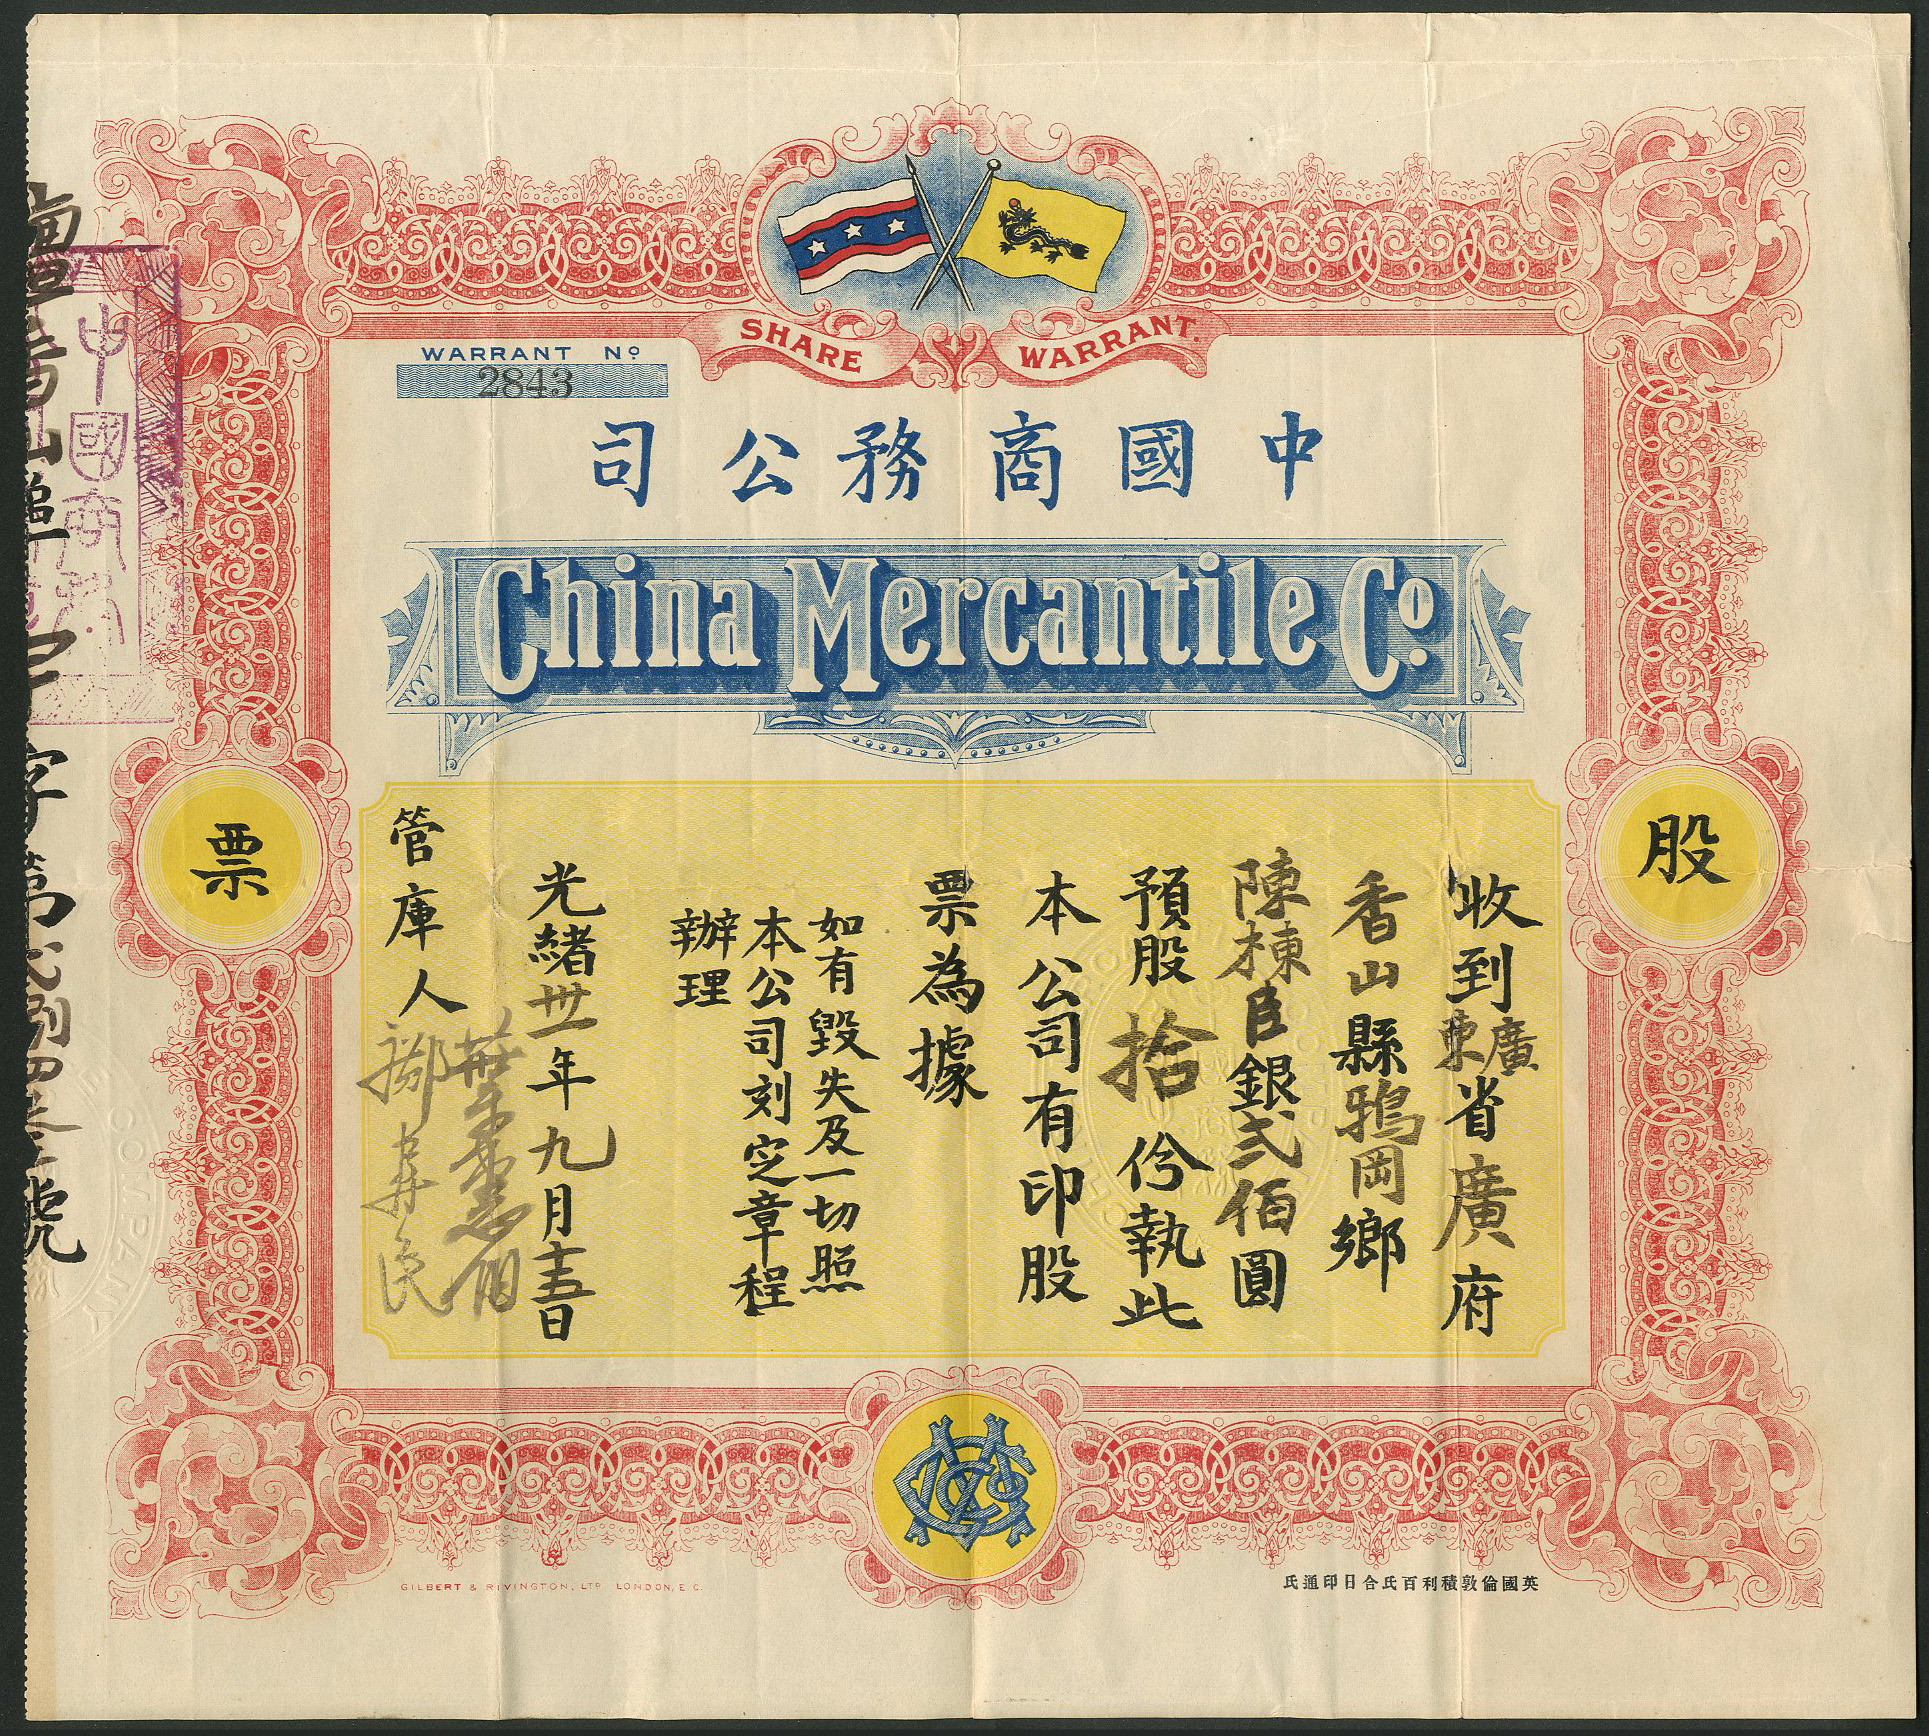 SHARE WARRANT.
WARRANT Nº
2843
中國商務公司
China Mercantile Cº.
股票
收到廣東省廣府
香山縣鴉岡鄉
陳棟臣銀弍佰圓
預股拾份執此
本公司有印股
票為據
如有毀失及一切照
本公司刻定章程
辦理
光緒卅一年九月十五日
管庫人
中國商務
字第弍捌四叁號
COMPANY
GILBERT & RIVINGTON, LTD LONDON, E.C.
英國倫敦積利百氏合日印通氏